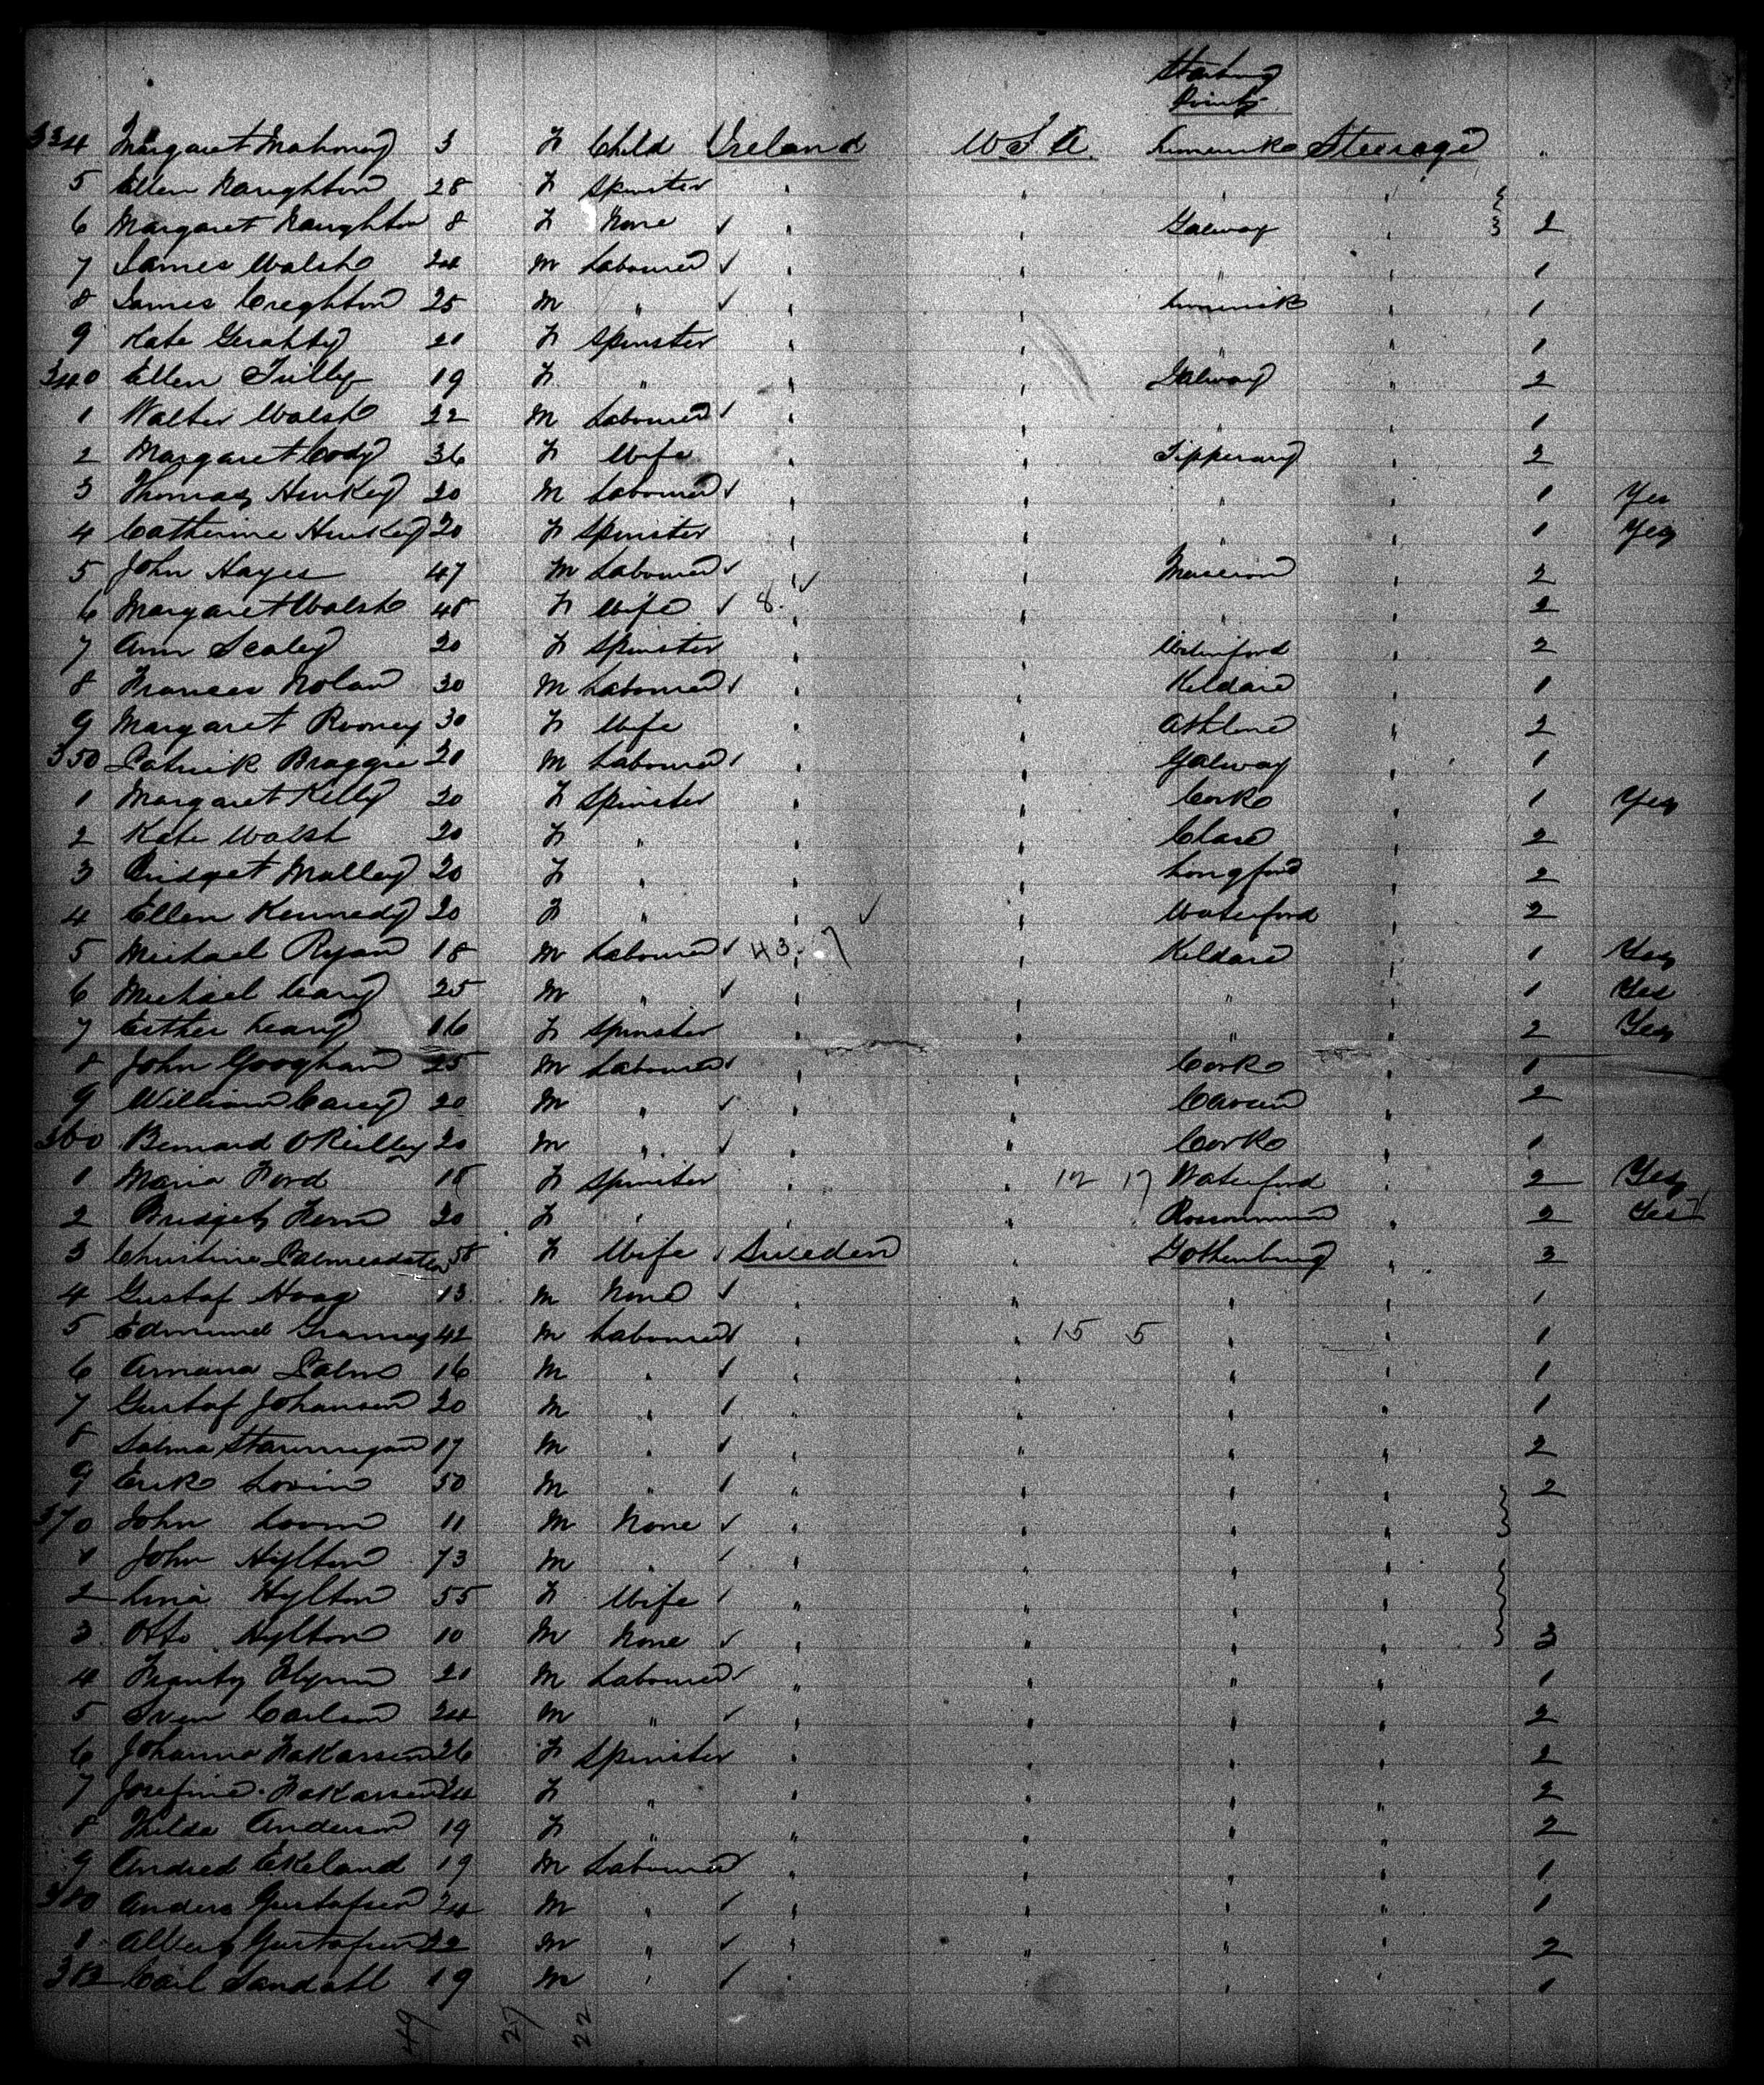 Starting
Points
334 Margaret Mahoney 3 F Child Ireland U.S.A. Limerick Steerage "
5 Ellen Naughton 28 F Spinster " " " "
6 Margaret Naughton 8 F None ✓ " " Galway " 2
7 James Walsh 24 M Labourer ✓ " " " " 1
8 James Creghton 25 M " ✓ " " Limerick " 1
9 Kate Gerahty 21 F Spinster " " " " 1
340 Ellen Tully 19 F " " " Galway " 2
1 Walter Walsh 22 M Labourer ✓ " " " " 1
2 Margaret Cody 36 F Wife " " Tipperary " 2
3 Thomas 20 M Labourer ✓ " " " " 1 Yes
4 Catherine 20 F Spinster " " " " 1 Yes
5 John Hayes 47 M Labourer ✓ " ✓ " " 2
6 Margaret Walsh 48 F Wife ✓ 8 " " " " 2
7 Ann Scaley 20 F Spinster " " " 2
8 Frances Nolan 30 M Labourer ✓ " " Kildare " 1
9 Margaret Rooney 30 F Wife " " Athlone " 2
350 Patrick 21 M Labourer ✓ " " Galway " 1
1 Margaret Kelly 20 F Spinster " " Cork " 1 Yes
2 Kate Walsh 20 F " " " Clare " 2
3 Bridget Malley 20 F " " " Longford " 2
4 Ellen Kennedy 20 F " " ✓ " Waterford " 2
5 Michael Ryan 18 M Labourer ✓ 43 " 7 " Kildare " 1 Yes
6 Michael 25 M " ✓ " " " " 1 Yes
7 Esther 16 F Spinster " " " " 2 Yes
8 John Googhan 25 M Labourer ✓ " " Cork " 1
9 William Carey 20 M " ✓ " " Cavan " 2
360 Bernard OReilley 20 M " ✓ " " Cork " 1
1 Maria Ford 18 F Spinster " " 12 17 Waterford " 2 Yes
2 Bridget 20 F " " " " 2 Yes
3 Christine 58 F Wife ✓ Sweden " Gothenburg " 3
4 Gustaf Hoag 13 M None ✓ " " " " 1
5 Edmund 42 M Labourer ✓ " " 15 5 " " 1
6 Palm 16 M " ✓ " " " " 1
7 Gustaf Johansen 20 M " ✓ " " " " 1
8 17 M " ✓ " " " " 2
9 Erik Lovin 50 M " ✓ " " " " 2
370 John Lovin 11 M None ✓ " " " "
1 John Hylton 73 M " ✓ " " " "
2 Hylton 55 F Wife ✓ " " " "
3 Otto Hylton 10 M None ✓ " " " " 3
4 21 M Labourer ✓ " " " " 1
5 Sven Carlson 24 M " ✓ " " " " 2
6 Johanna 26 F Spinster " " " " 2
7 Josefine 24 F " " " " " 2
8 Hilda Anderson 19 F " " " " " 2
9 Andred Ekeland 19 M Labourer ✓ " " " " 1
380 Anders Gustafsen 24 M " ✓ " " " " 1
1 Albery Gustafsen 22 M " ✓ " " " " 2
382 Carl Sandahl 19 M " ✓ " " " " 1
49 27 22